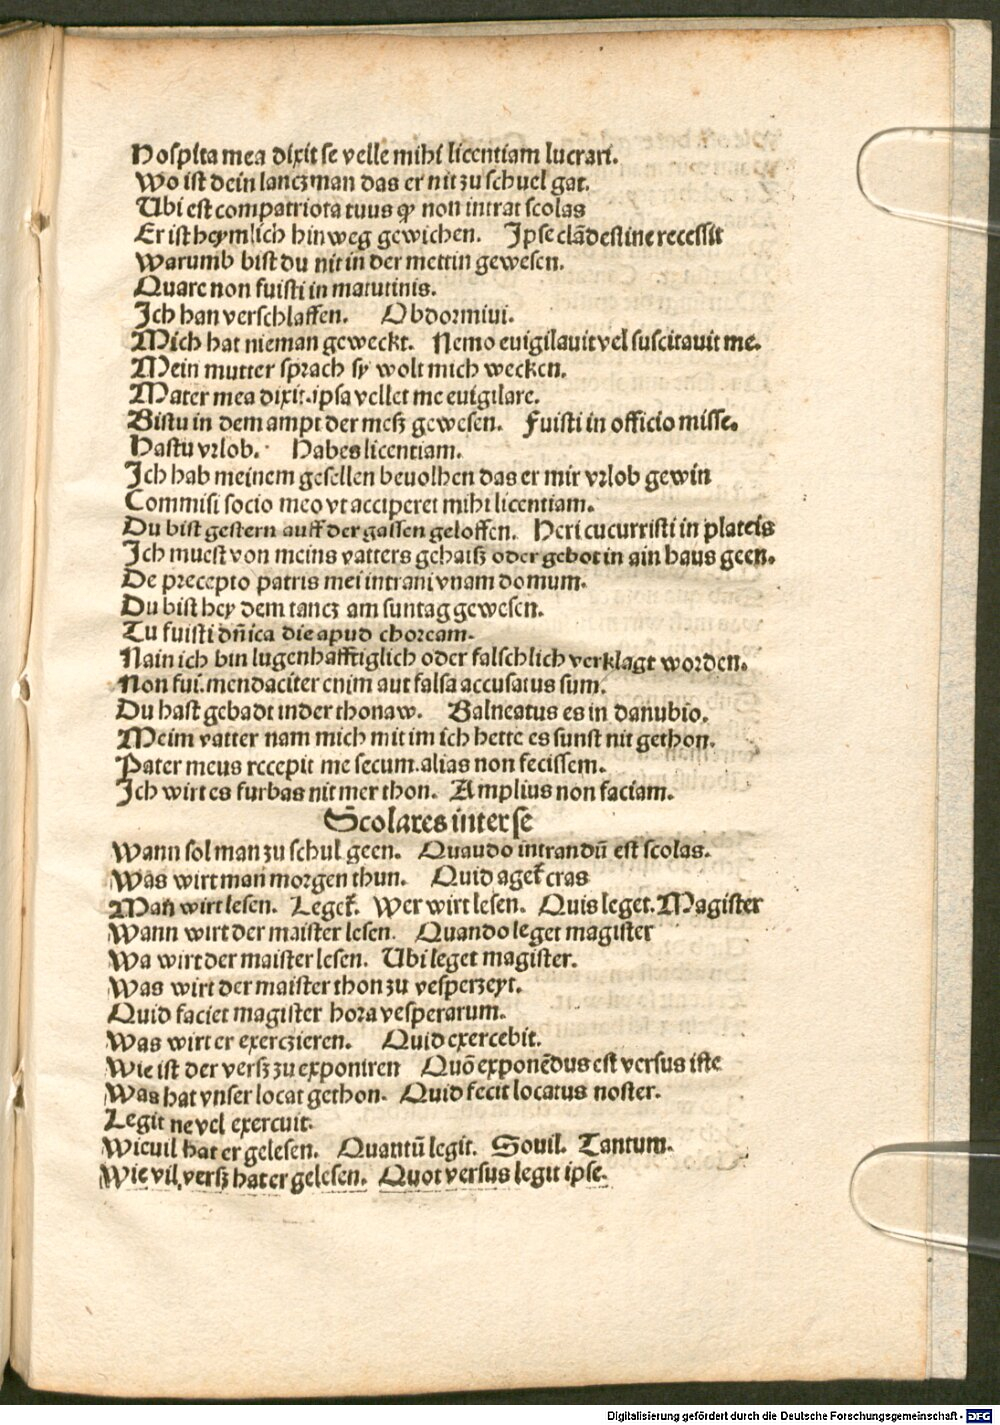 Hospita mea dixit se velle mihi licentiam lucrari.
Wo ist dein lanczman das er nit zu schuel gat.
Ubi est compatriota tuus ꝙ non intrat scolas
Er ist heymlich hinweg gewichen. Ipse clādestine recessit
Warumb bist du nit in der mettin gewesen.
Quare non fuisti in matutinis.
Ich han verschlaffen. Obdormiui.
Mich hat nieman geweckt. Nemo euigilauit vel suscitauit me.
Mein mutter sprach sy wolt mich wecken.
Mater mea dixit. ipsa vellet me euigilare.
Bistu in dem ampt der meß gewesen. Fuisti in officio misse.
Hastu vrlob. Habes licentiam.
Ich hab meinem gesellen beuolhen das er mir vrlob gewin
Commisi socio meo vt acciperet mihi licentiam.
Du bist gestern auff der gassen geloffen. Heri cucurristi in plateis
Ich muest von meins vatters gehaiß oder gebot in ain haus geen.
De precepto patris mei intraui vnam domum.
Du bist bey dem tancz am suntag gewesen.
Tu fuisti dn̄ica die apud choream.
Nain ich bin lugenhafftiglich oder falschlich verklagt worden.
Non fui. mendaciter enim aut falsa accusatus sum.
Du hast gebadt inder thonaw. Balneatus es in danubio.
Meim vatter nam mich mit im ich hette es sunst nit gethon.
Pater meus recepit me secum. alias non fecissem.
Ich wirt es furbas nit mer thon. Amplius non faciam.
Scolares inter se
Wann sol man zu schul geen. Quaudo intrandū est scolas.
Was wirt man morgen thun. Quid aget̄ cras
Man wirt lesen. Leget̄. Wer wirt lesen. Quis leget. Magister
Wann wirt der maister lesen. Quando leget magister
Wa wirt der maister lesen. Ubi leget magister.
Was wirt der maister thon zu vesperzeyt.
Quid faciet magister hora vesperarum.
Was wirt er exerczieren. Quid exercebit.
Wie ist der verß zu exponiren Quō exponēdus est versus iste
Was hat vnser locat gethon. Quid fecit locatus noster.
Legit ne vel exercuit.
Wieuil hat er gelesen. Quantū legit. Souil. Tantum.
Wie vil verß hat er gelesen. Quot versus legit ipse.
Digitalisierung gefördert durch die Deutsche Forschungsgemeinschaft - DFG